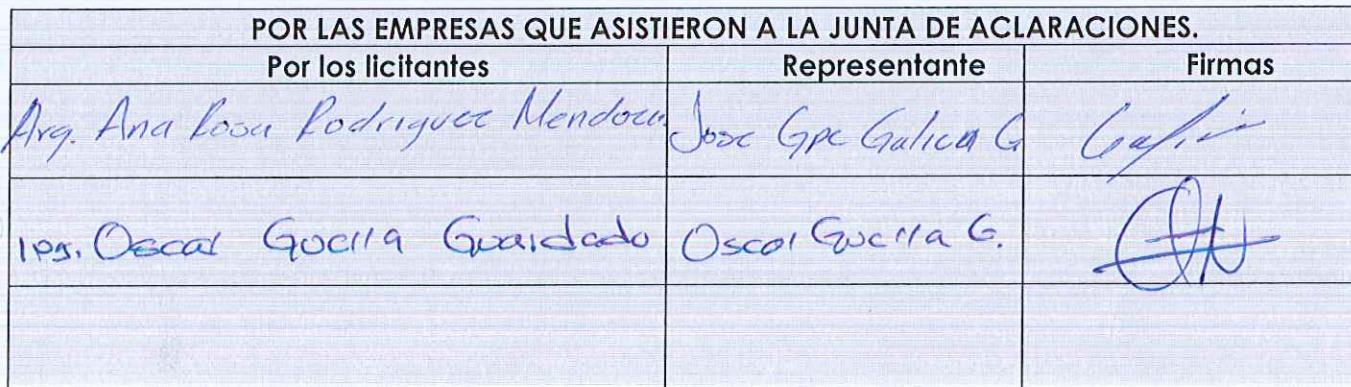 POR LAS EMPRESAS QUE ASISTIERON A LA JUNTA DE ACLARACIONES.
Por los licitantes Representante Firmas
Arq. Ana Rosa Rodriguez Mendoza Jose Gpe Galicia G
Ing. Oscar Guerra Guardado Oscar Guerra G.